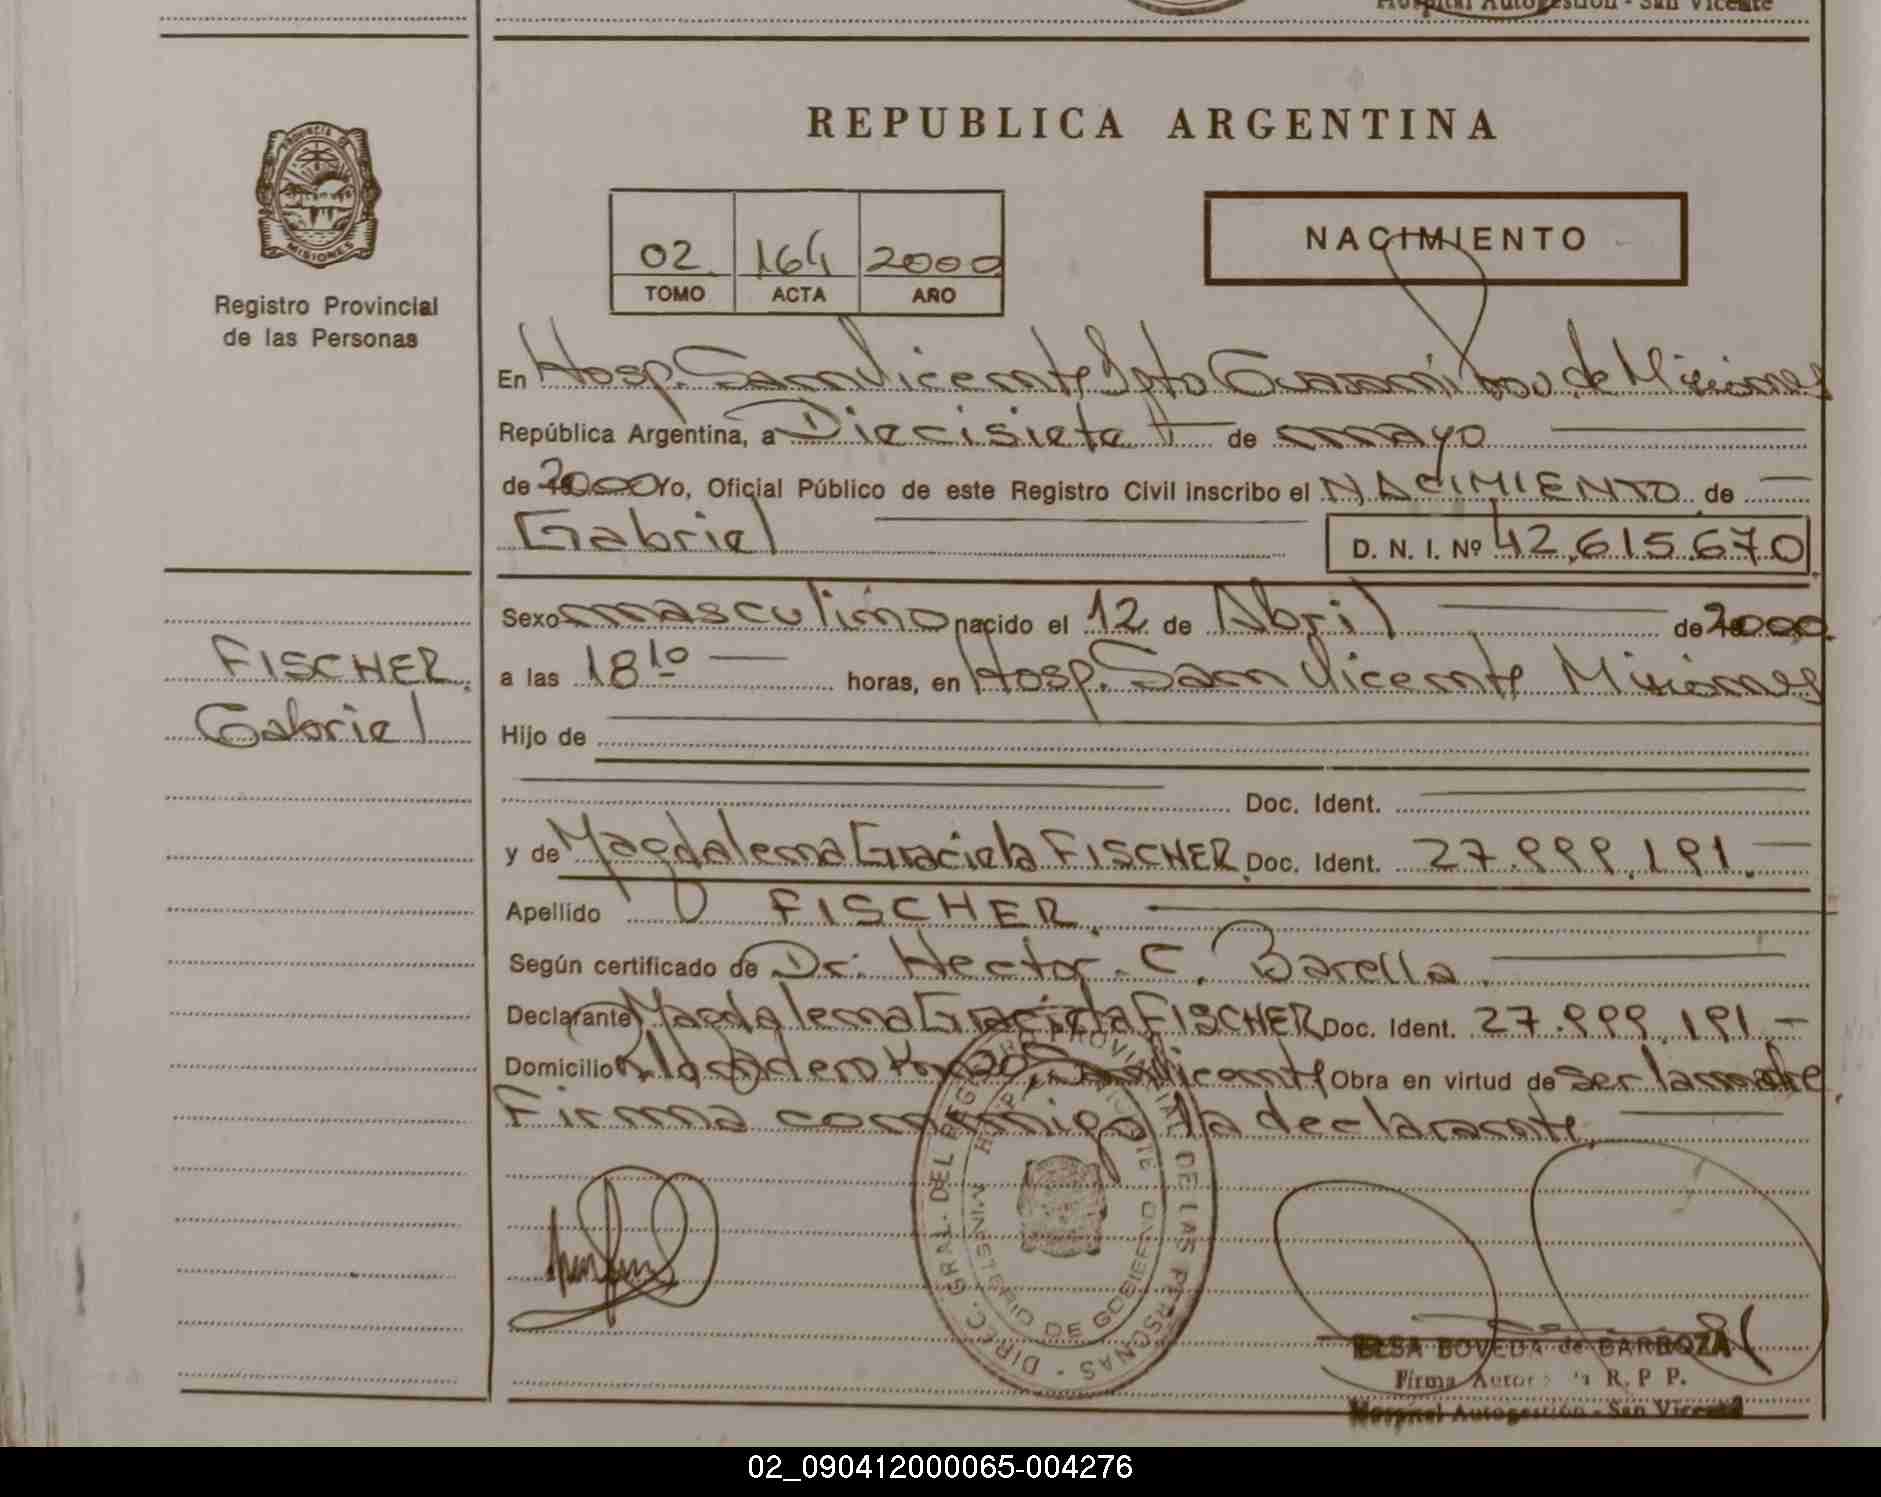 Hospital Autogestión - San Vicente
PROVINCIA
MISIONES
Registro Provincial
de las Personas
REPUBLICA ARGENTINA
02 164 2000
TOMO ACTA AÑO
NACIMIENTO
En Hosp. San Vicente Dpto Guaraní Prov. de Misiones
República Argentina, a Diecisiete de mayo
de 2000 Yo, Oficial Público de este Registro Civil inscribo el NACIMIENTO de
Gabriel D. N. I. Nº 42.615.670
Sexo masculino nacido el 12 de Abril de 2000
FISCHER
a las 18 10 horas, en Hosp. San Vicente Misiones
Gabriel
Hijo de
Doc. Ident.
y de Magdalena Graciela FISCHER Doc. Ident. 27.999.191.
Apellido FISCHER.
Según certificado de Dr. Hector C. Barella
Declarante Magdalena Graciela FISCHER Doc. Ident. 27.999.191
Domicilio San Vicente Obra en virtud de ser la madre.
Firma conmigo la declarante.
DIREC. GRAL. DEL REG. PROVINCIAL DE LAS PERSONAS
MINISTERIO DE GOBIERNO
ELSA BOVEDA de BARBOZA
Firma Autor R. P P.
Hospital Autogestión - San Vicente
02_090412000065-004276